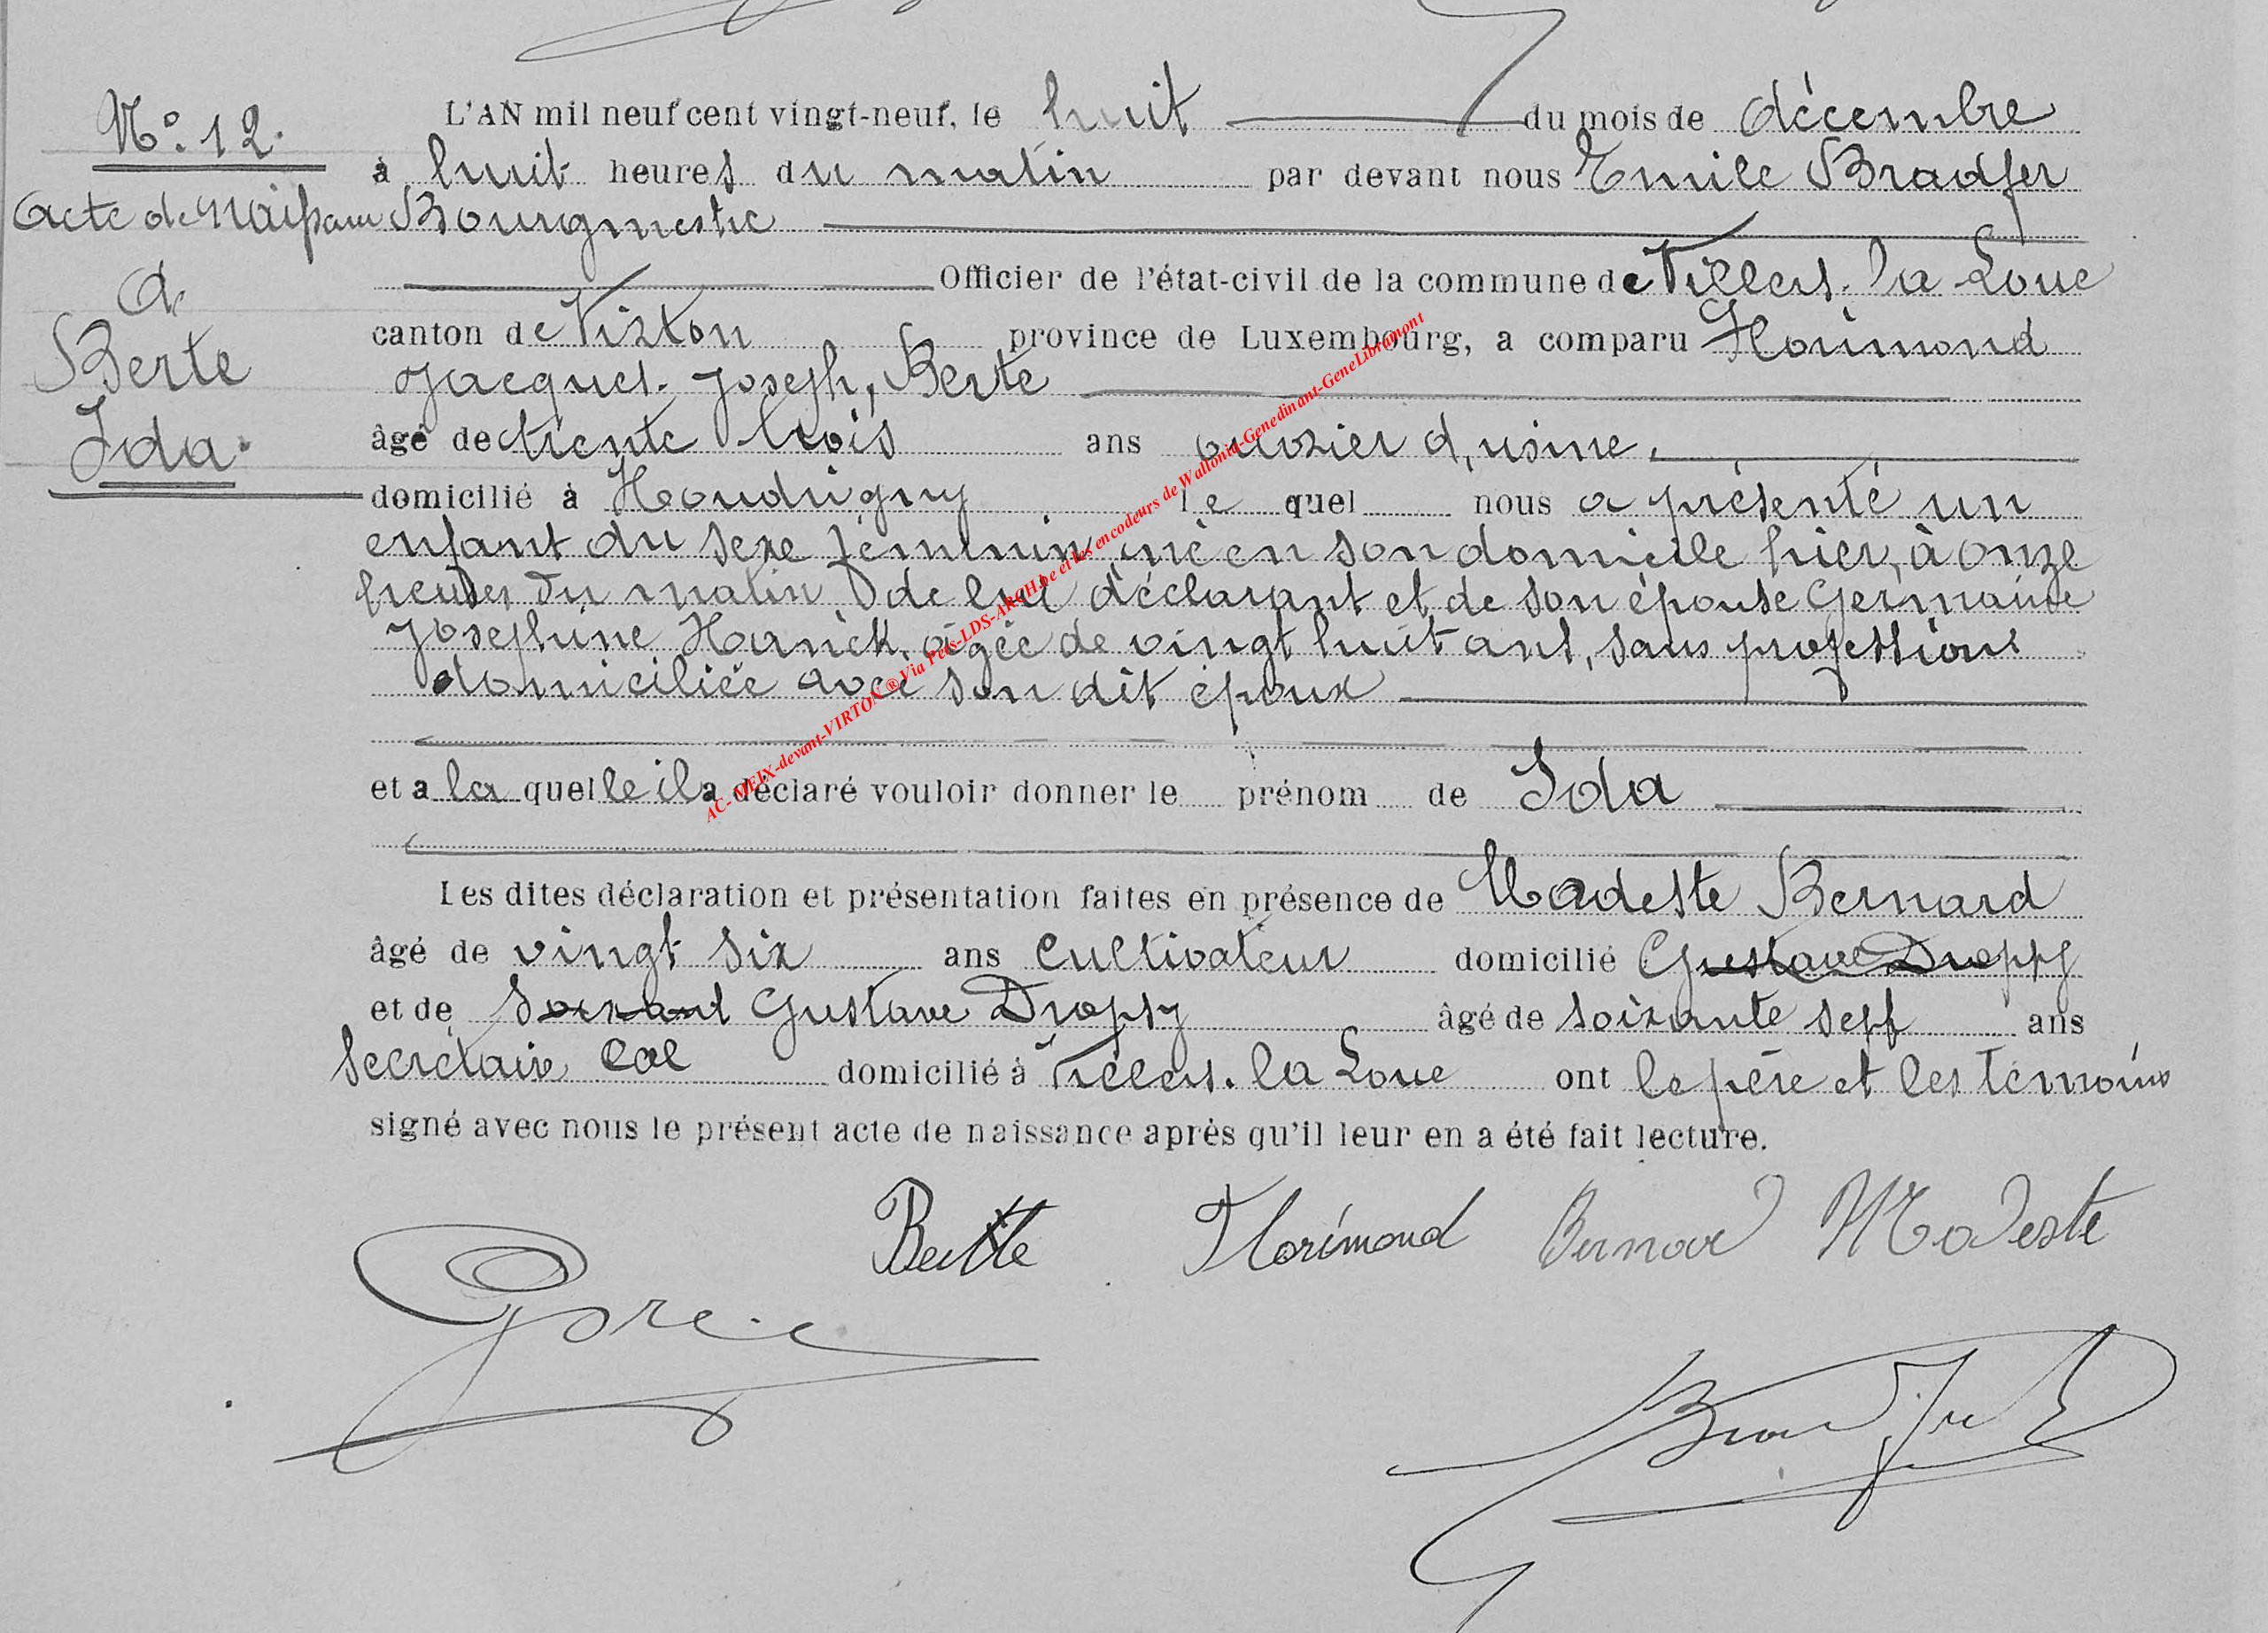 N° 12.
Acte de Naissance
de
Berte
Ida.
L'AN mil neuf cent vingt-neuf, le huit du mois de décembre
à huit heures du matin par devant nous Emile Bradfer
Bourgmestre
Officier de l'état-civil de la commune de Villers-la-Loue
canton de Virton province de Luxembourg, a comparu Florimond
Jacques-Joseph, Berte
âgé de trente trois ans ouvrier d'usine.
domicilié à Houdrigny le quel nous a présenté un
enfant du sexe féminin, né en son domicile hier, à onze
heures du matin de lui déclarant et de son épouse Germaine
Josephine Hanick, âgée de vingt huit ans, sans profession
domiciliée avec son dit époux
et a la quelle il a déclaré vouloir donner le prénom de Ida
Les dites déclaration et présentation faites en présence de Modeste Bernard
âgé de vingt six ans cultivateur domicilié Gustave Dropsy
et de soixant Gustave Dropsy âgé de soixante sept ans
secrétaire cal domicilié à Villers-la-Loue ont le père et les témoins
signé avec nous le présent acte de naissance après qu'il leur en a été fait lecture.
Berthe Florimond Bernard Modeste
AC-MEIX-devant-VIRTON ® Via Pets-LDS-ARCH.be et les encodeurs de Wallonia-Genedinant-GeneLibramont